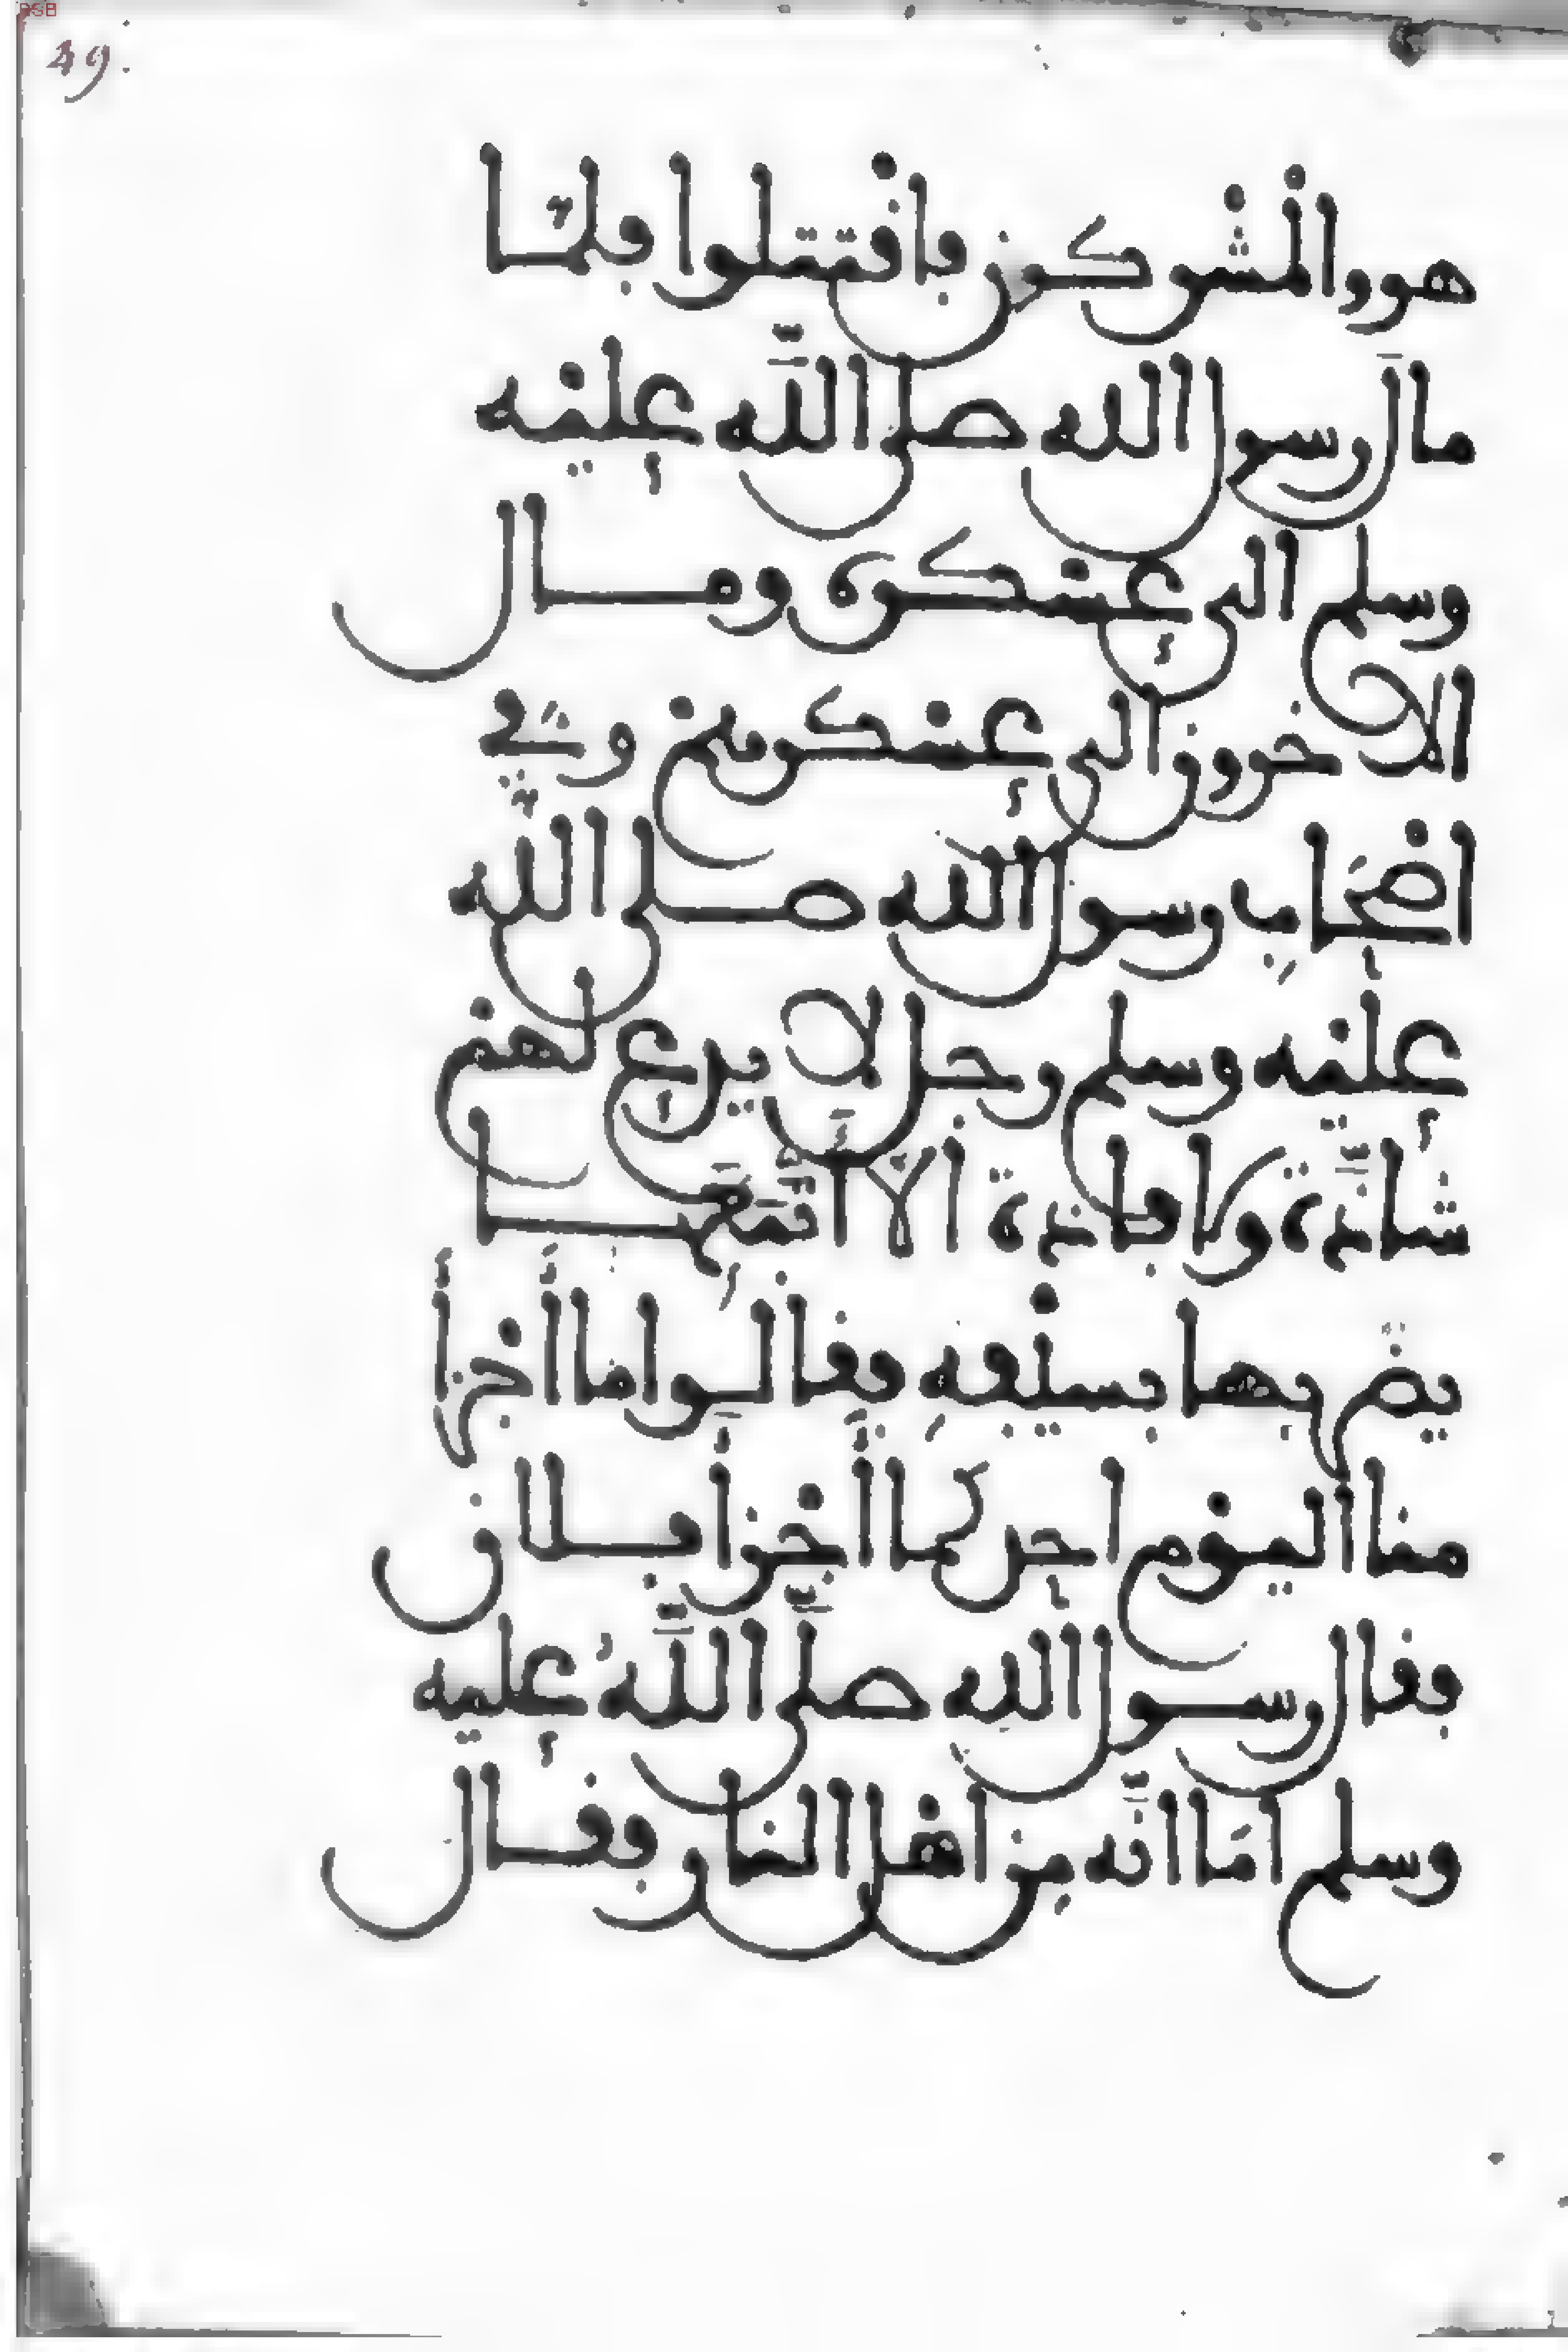 49.
هو والمشركون فاقتتلوا فلما
مال رسول الله صلى الله عليه
وسلم الى عسكره ومال
الاخرون الى عسكرهم وفي
اصحاب رسول الله صلى الله
عليه وسلم رجل لا يدع لهم
شاذة ولا فاذة الا اتبعها
يضربها بسيفه فقالوا ما أجزأ
منا اليوم احد كما أجزأ فلان
فقال رسول الله صلى الله عليه
وسلم اما انه من اهل النار فقال